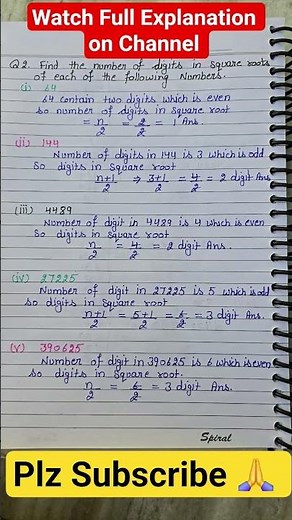 Watch Full Explanation
on Channel
Q2. Find the number of digits in Square roots
of each of the following Numbers.
(i) 64
64 contain two digits which is even
so number of digits in Square root
= n/2 = 2/2 = 1 Ans.
(ii) 144
Number of digits in 144 is 3 which is odd
So digits in Square root
n+1/2 ⇒ 3+1/2 = 4/2 = 2 digit Ans
(iii) 4489
Number of digit in 4489 is 4 which is even
So digits in Square root
n/2 = 4/2 = 2 digit Ans.
(iv) 27225
Number of digit in 27225 is 5 which is odd
so digits in Square root
n+1/2 = 5+1/2 = 6/2 = 3 digit Ans.
(v) 390625
Number of digit in 390625 is 6 which is even
So digits in Square root.
n/2 = 6/2 = 3 digit Ans.
Spiral
Plz Subscribe 🙏